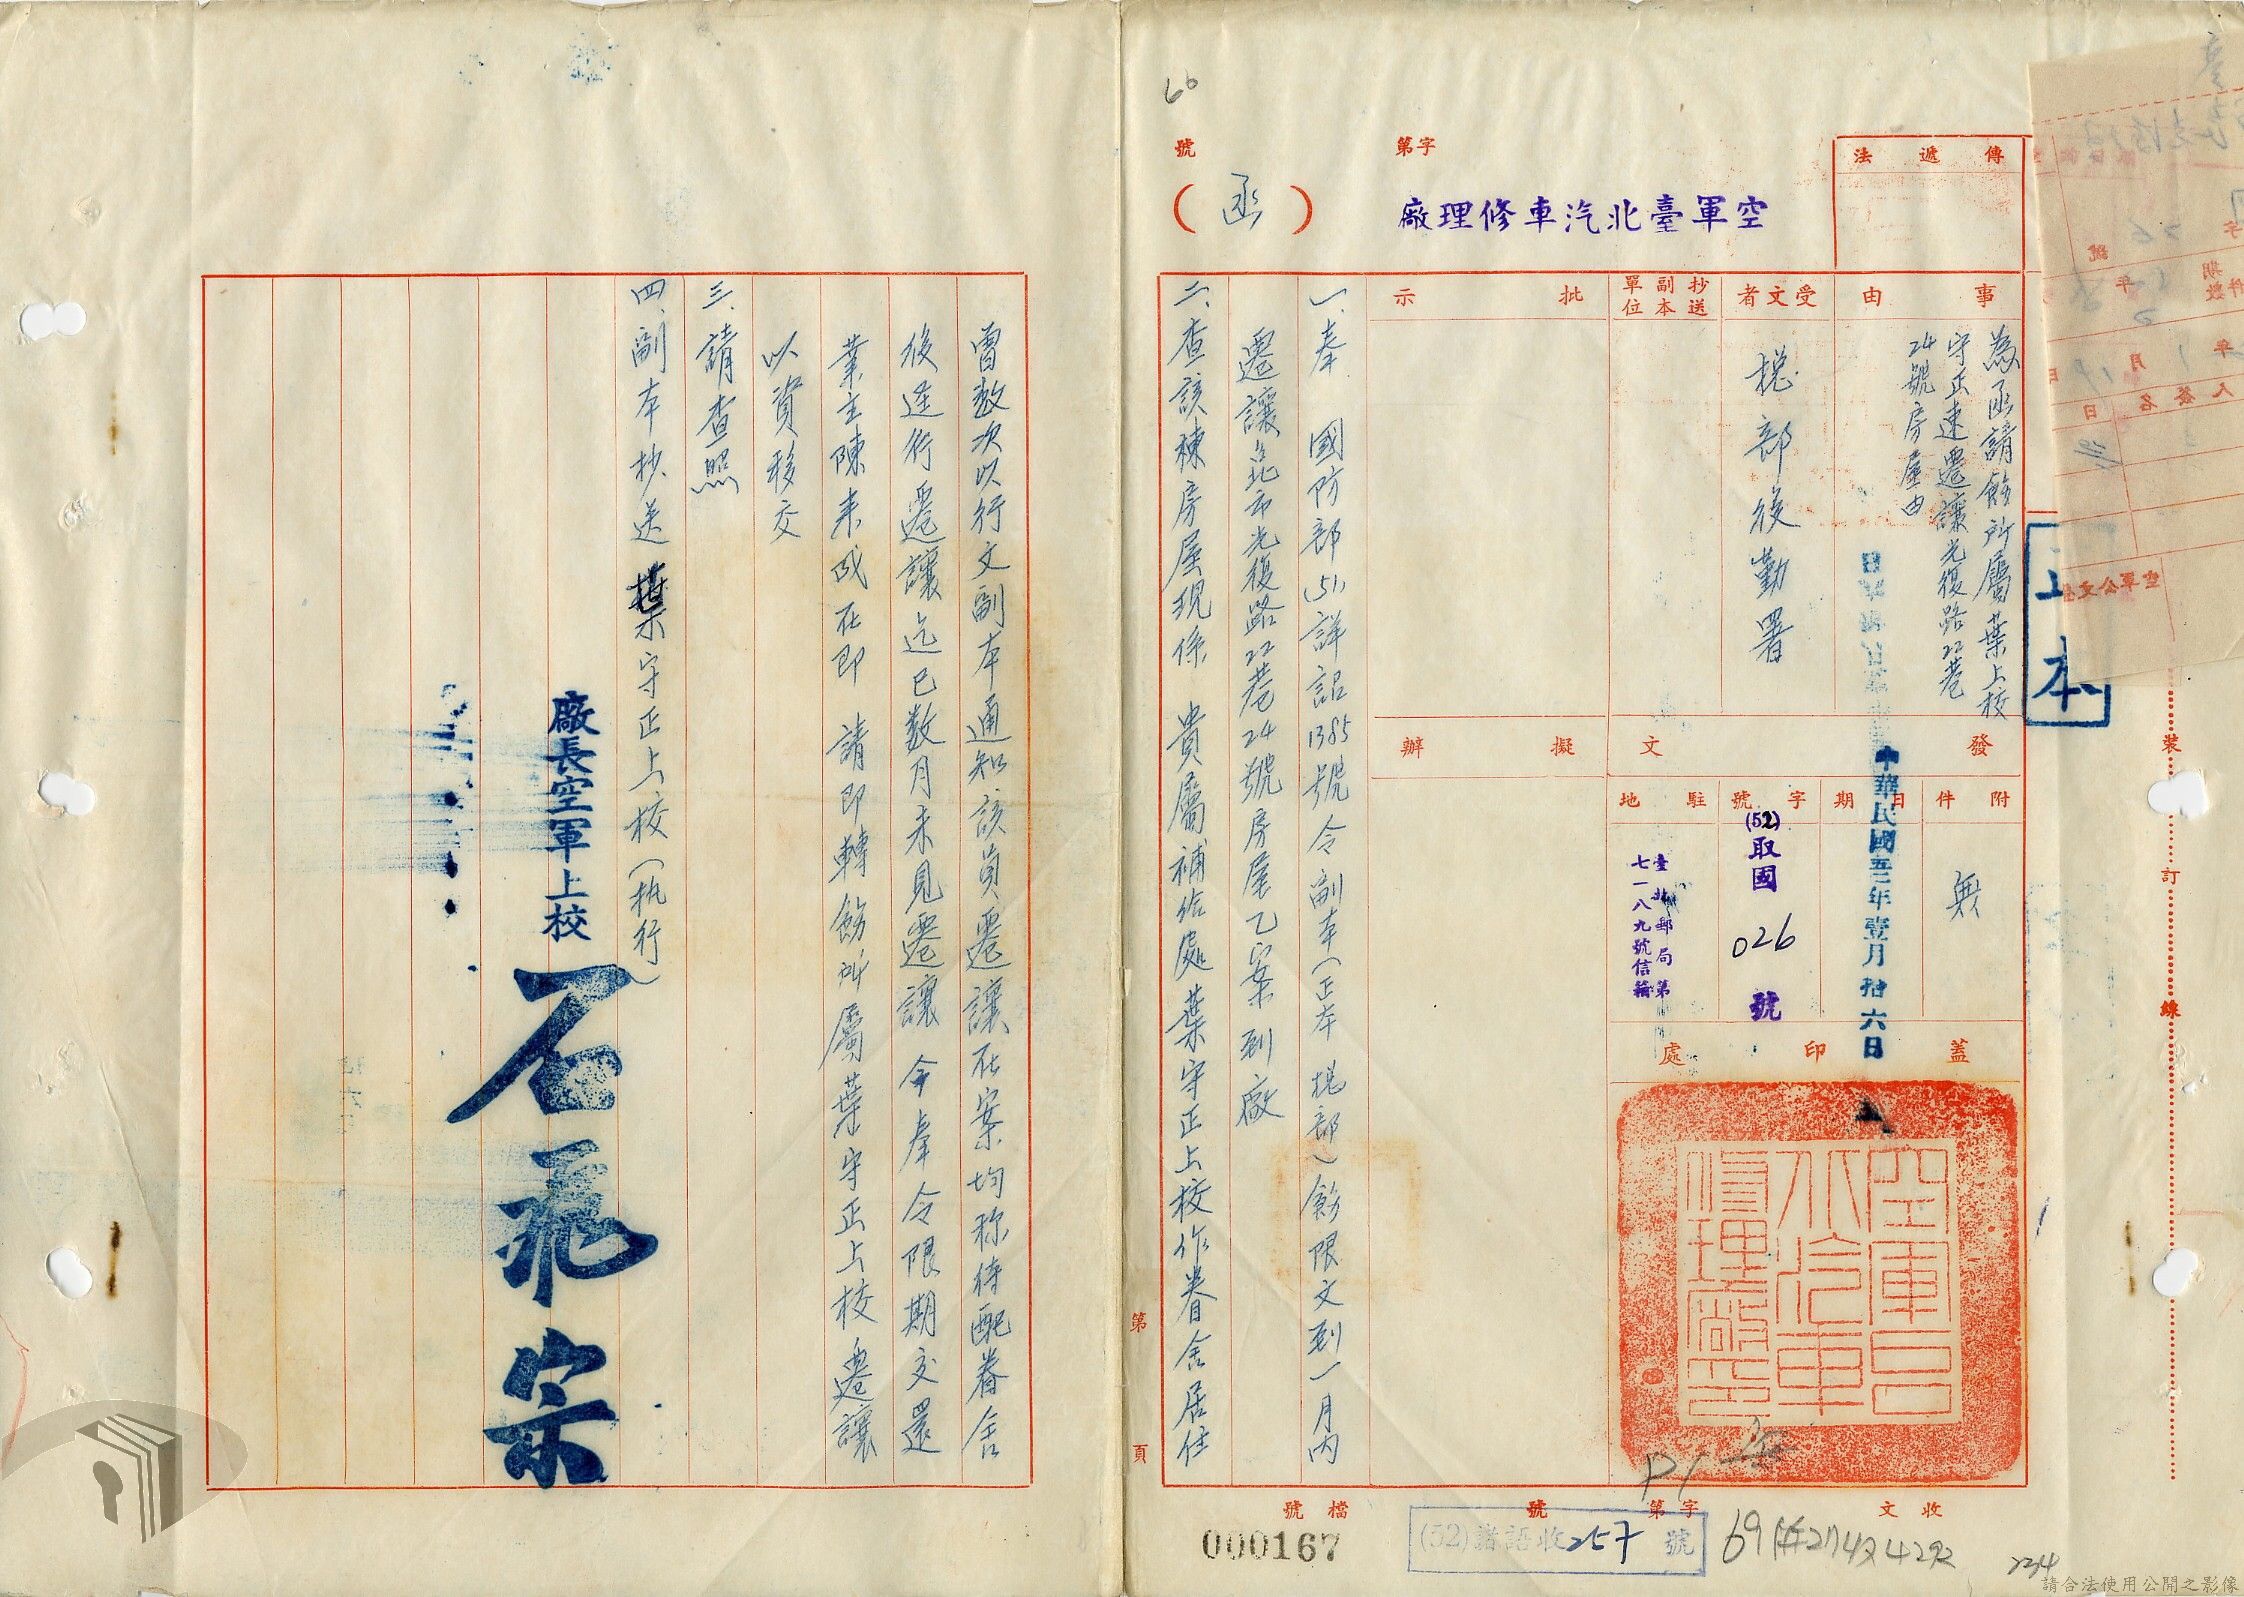 66
字第
號
傳遞法
空軍臺北汽車修理廠
(函)
事由
為函請飭所屬葉上校
守正速遷讓光復路22巷
24號房屋由
正本
受文者
總部後勤署
抄送副本單位
批示
發文
擬辦
附件
無
日期
中華民國五二年壹月拾六日
字號
(52)取國 026 號
駐地
臺北郵局第
七一八九號信箱
蓋印處
空軍台
北汽車
修理廠印
一、奉 國防部(51)詳詔1385號令副本(正本總部)飭限文到一月內
遷讓台北市光復路22巷24號房屋乙案到廠
二、查該棟房屋現係 貴屬補給處葉守正上校作眷舍居住
曾数次以行文副本通知該員遷讓在案均称待配眷舍
後逕行遷讓迄已数月未見遷讓 今奉令限期交還
業主陳朱成在即 請即轉飭所屬葉守正上校遷讓
以資移交
三、請查照
四、副本抄送葉守正上校(执行)
廠長空軍上校 石飛宗
裝
訂
線
第
頁
收文
字第
號
檔號
000167
(52)諸語收257號
P1
234
請合法使用公開之影像